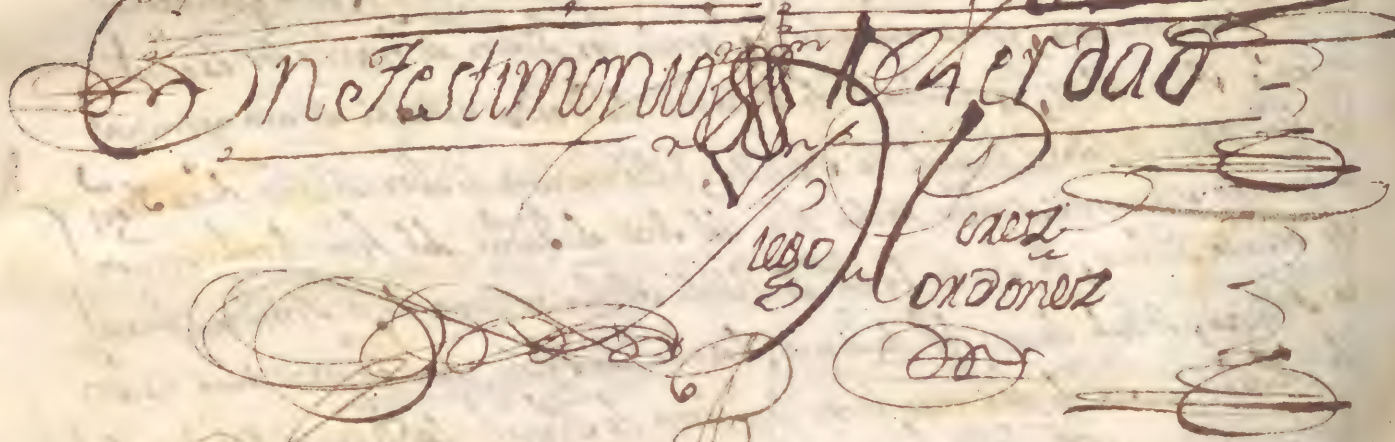 En testimonio de Verdad
Diego Perez
ordonez